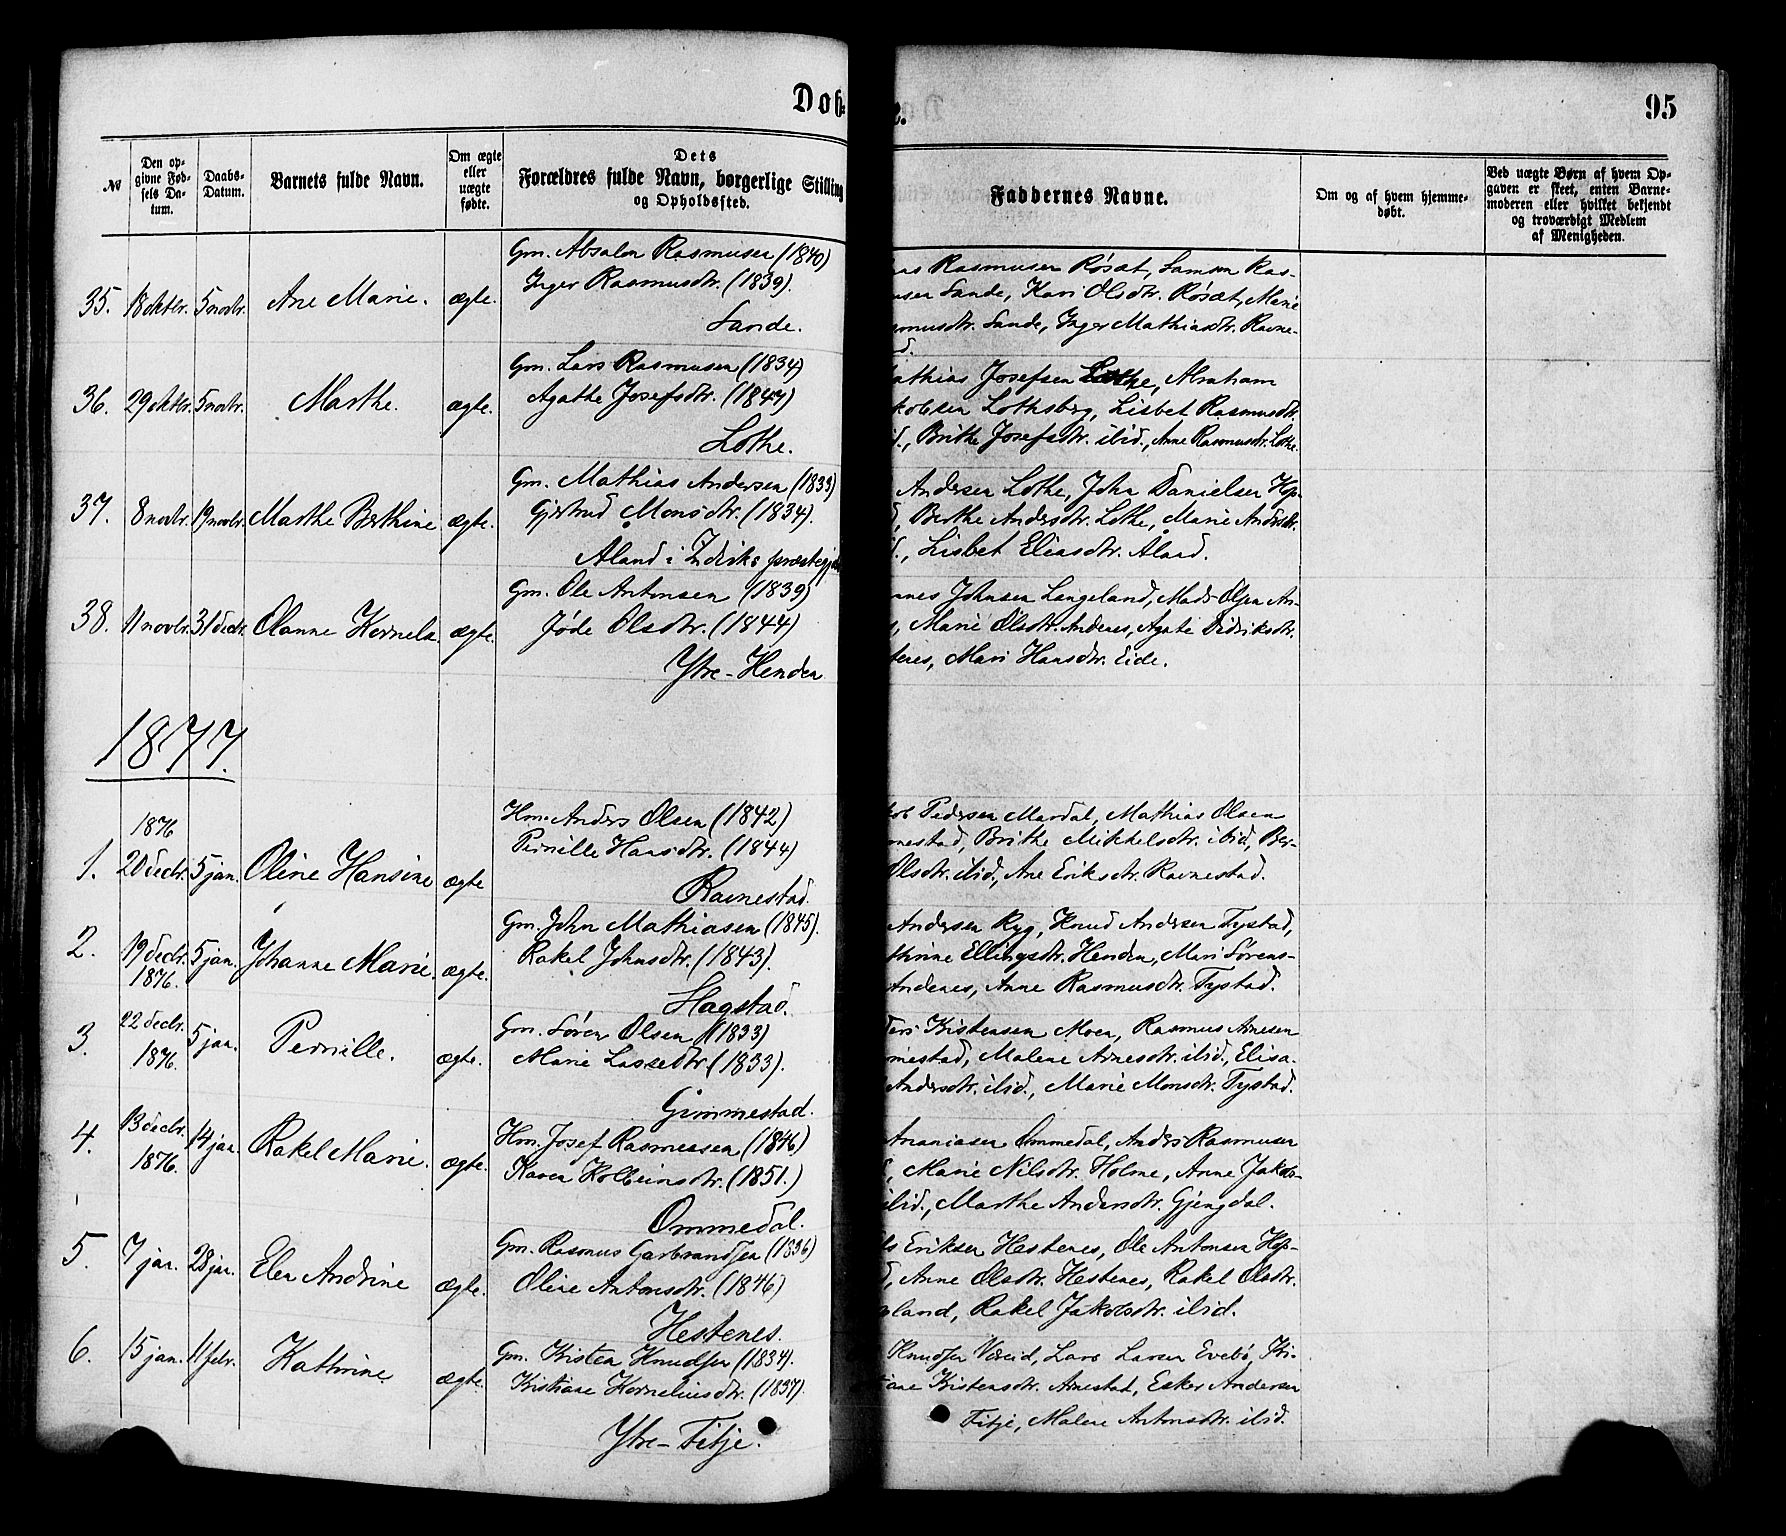 Dob.
95
№
Den op-
givne Fød-
sels Da-
tum.
Daabs-
Datum.
Barnets fulde Navn.
Om ægte
eller
uægte
fødte.
Dets
Forældres fulde Navn, borgerlige Stilling
og Opholdssted.
Faddernes Navne.
Om og af hvem hjemme-
døbt.
Ved uægte Børn af hvem Op-
gaven er skeet, enten Barne-
moderen eller hvilket bekjendt
og troværdigt Medlem
af Menigheden.
35. 18 oktbr. 5 novbr. Ane Marie. ægte.
Gm. Absalon Rasmusen (1840)
Inger Rasmusdtr. (1839).
Sande.
Rasmusen Røsæt, Samson Ras-
Sande, Kari Olsdtr. Røsæt, Marie
Sande, Inger Mathiasdtr. Ravne-
36. 29 oktbr. 5 novbr. Marthe. ægte.
Gm. Lars Rasmusen (1834)
Agathe Josefsdtr. (1847)
Lothe.
Josefsen Lothe, Abraham
Lothsberg, Lisbet Rasmusdtr.
Brithe Josefsdtr. ibid., Anne Rasmusdtr. Lothe.
37. 8 novbr. 19 novbr. Marthe Berthine ægte.
Gm. Mathias Andersen (1833)
Gjertrud Monsdtr. (1834).
Aland i
Andersen Lothe, John Danielsen Hop-
Berthe Andersdtr. Lothe, Marie Andersdtr.
Lisbet Eliasdtr. Åland.
38. 11 novbr. 31 decbr. Olanne Kornela ægte.
Gm. Ole Antonsen (1839)
Jøde Olsdtr. (1844)
Ytre-Henden
Johnsen Langeland, Mads Olsen An-
Marie Olsdtr. Andenes, Agate Didriksdtr.
Mari Hansdtr. Eide.
1877.
1876
1. 20 decbr. 5 jan. Oline Hansine ægte
Hm. Anders Olsen (1842)
Pernille Hansdtr. (1844)
Ravnestad.
Pedersen Mardal, Mathias Olsen
Brithe Mikkelsdtr. ibid, Ber-
Olsdtr. ibid., Ane Eriksdtr. Ravnestad.
2. 19 decbr. 1876. 5 jan. Johanne Marie. ægte.
Gm. John Mathiasen (1845).
Rakel Johnsdtr. (1843).
Hagstad.
Andersen Ryg, Knud Andersen Tystad,
Ellingsdtr. Henden, Mari Sørens-
Andenes, Anne Rasmusdtr. Tystad.
3. 22 decbr. 1876. 5 jan. Pernille. ægte.
Gm. Søren Olsen (1833)
Marie Lassedtr (1833).
Gimmestad.
Kristensen Moen, Rasmus Arnesen
Malene Arnesdtr. ibid., Elisa-
Andersdtr. ibid., Marie Monsdtr. Tystad.
4. 13 decbr. 1876. 14 jan. Rakel Marie. ægte.
Hm. Josef Rasmussen (1846)
Karen Kolbeinsdtr. (1851.)
Ommedal.
Ananiasen Ommedal, Anders Rasmusen
Marie Nilsdtr. Holme, Anne Jakobs-
ibid., Marthe Andersdtr. Gjengdal.
5. 7 jan. 28 jan. Elen Andrine ægte.
Gm. Rasmus Garbrandsen (1836)
Oline Antonsdtr. (1846)
Hestenes.
Eriksen Hestenes, Ole Antonsen Hop-
Anne Olsdtr. Hestenes, Rakel Olsdtr.
Rakel Jakobsdtr. ibid.
6. 15 jan. 11 febr. Kathrine. ægte.
Gm. Kristen Knudsen (1834).
Kristiane Korneliusdtr. (1837).
Ytre-Fitje.
Knudsen Vereid, Lars Larsen Evebø, Kri-
Kristensdtr. Arnestad, Esker Andersen
Fitje, Malene Antonsdtr. ibid.